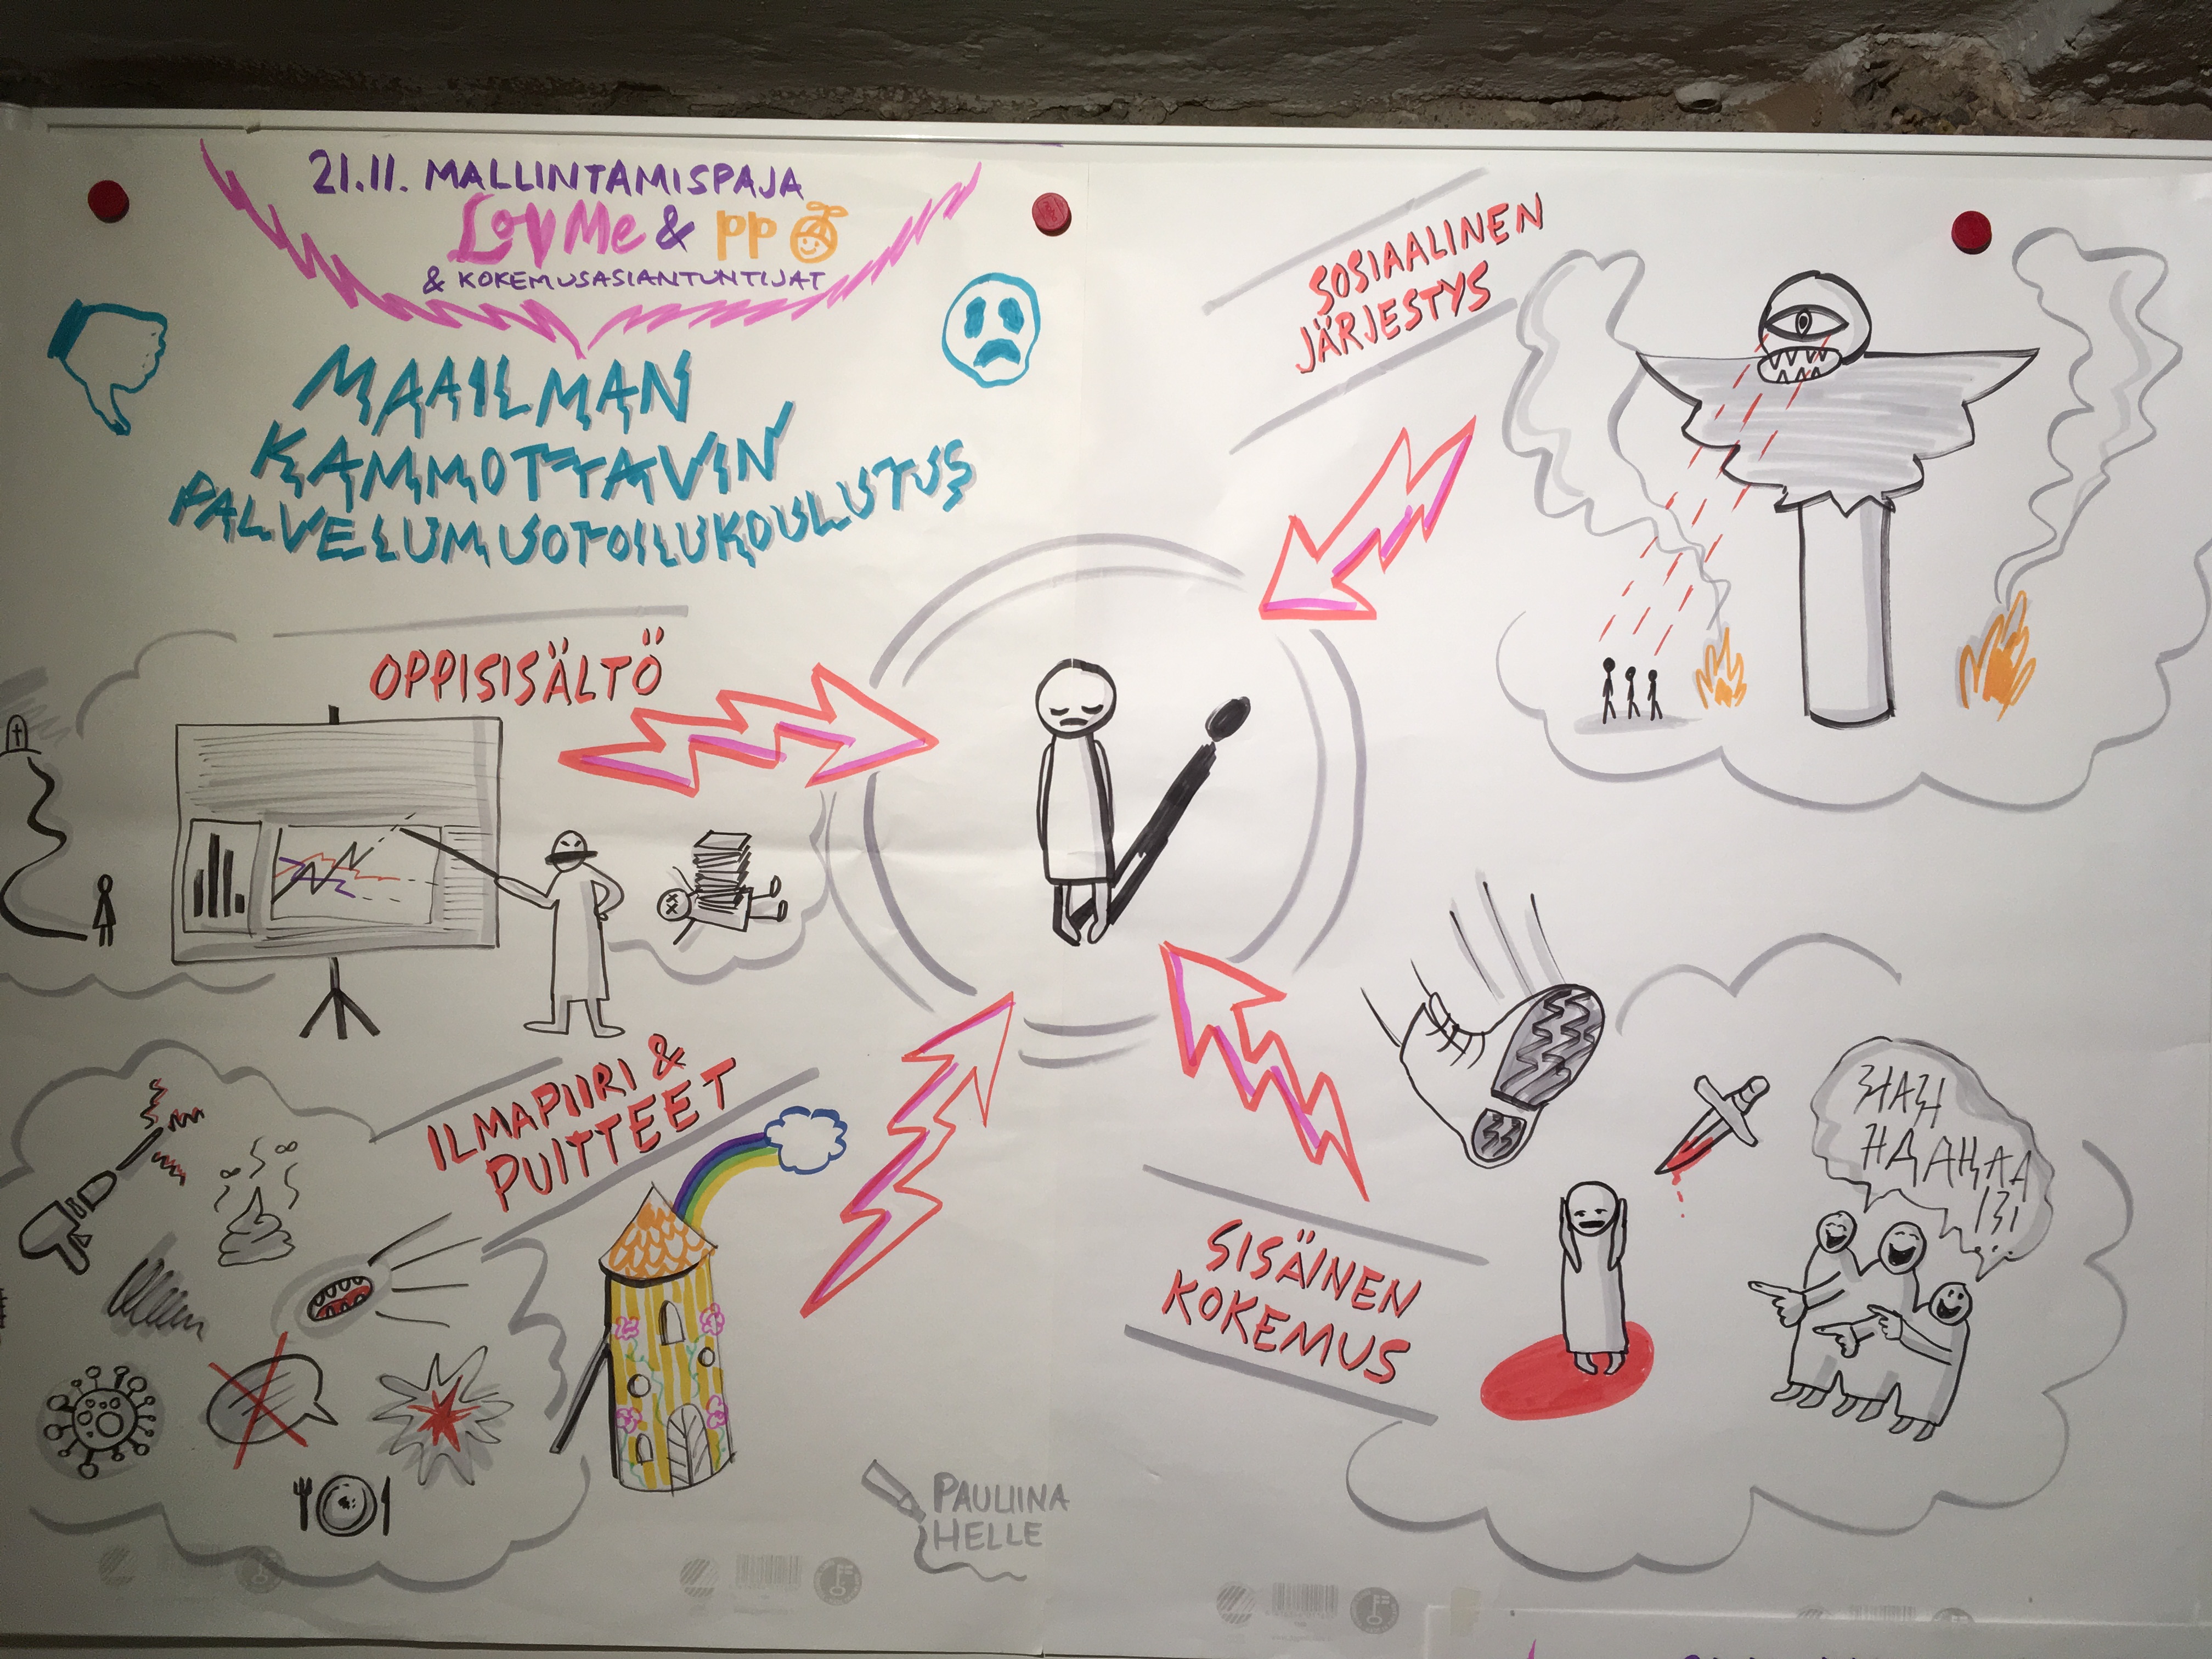 21.11. MALLINTAMISPAJA
LovMe & PP
& KOKEMUSASIANTUNTIJAT
MAAILMAN
KAMMOTTAVIN
PALVELUMUOTOILUKOULUTUS
SOSIAALINEN
JÄRJESTYS
OPPISISÄLTÖ
ILMAPIIRI &
PUITTEET
SISÄINEN
KOKEMUS
HAH
HAAHAA
PAULIINA
HELLE